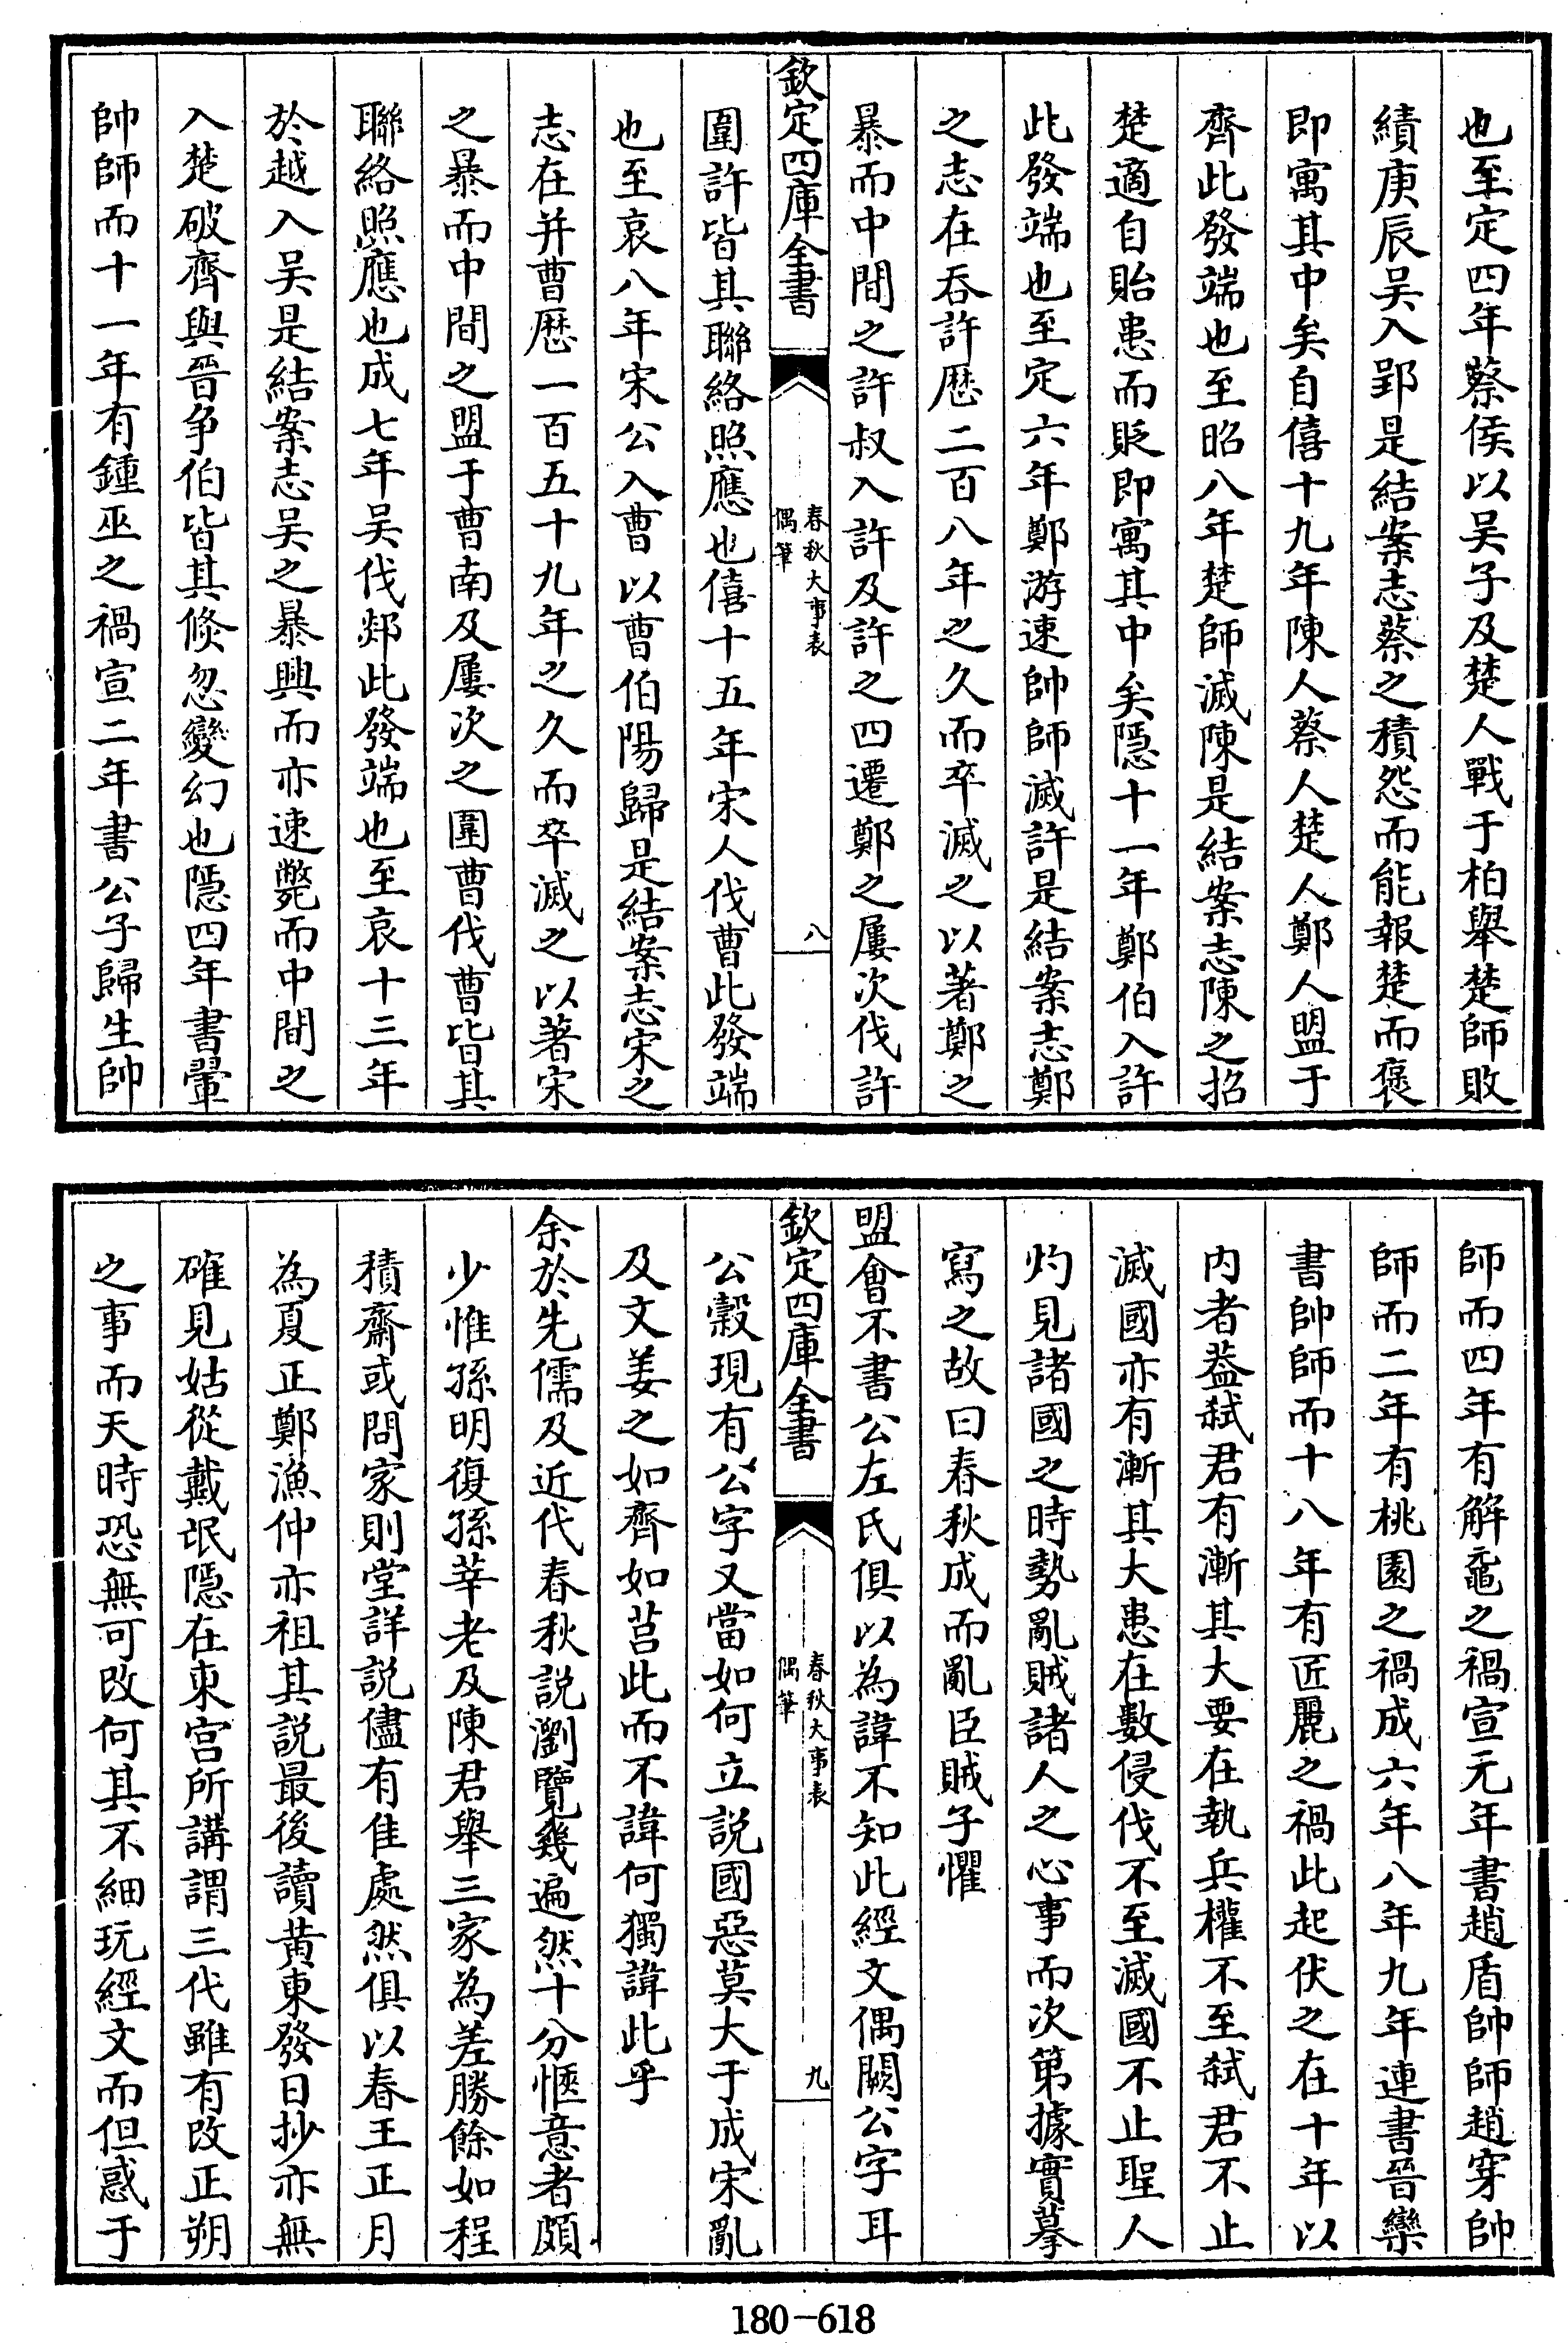 也至定四年蔡侯以吴子及楚人戰于柏舉楚師敗
績庚辰吴入郢是結案志蔡之積怨而能報楚而褒
即寓其中矣自僖十九年陳人蔡人楚人鄭人盟于
齊此發端也至昭八年楚師滅陳是結案志陳之招
楚適自貽患而貶即寓其中矣隱十一年鄭伯入許
此發端也至定六年鄭游速帥師滅許是結案志鄭
之志在吞許歴二百八年之久而卒滅之以著鄭之
暴而中間之許叔入許及許之四遷鄭之屢次伐許
欽定四庫全書
春秋大事表
偶筆
八
圍許皆其聯絡照應也僖十五年宋人伐曹此發端
也至哀八年宋公入曹以曹伯陽歸是結案志宋之
志在并曹歴一百五十九年之久而卒滅之以著宋
之暴而中間之盟于曹南及屢次之圍曹伐曹皆其
聯絡照應也成七年吴伐郯此發端也至哀十三年
於越入吴是結案志吴之暴興而亦速斃而中間之
入楚破齊與晉争伯皆其倐忽變幻也隱四年書翬
帥師而十一年有鍾巫之禍宣二年書公子歸生帥
師而四年有解黿之禍宣元年書趙盾帥師趙穿帥
師而二年有桃園之禍成六年八年九年連書晉欒
書帥師而十八年有匠麗之禍此起伏之在十年以
内者葢弑君有漸其大要在執兵權不至弑君不止
滅國亦有漸其大患在數侵伐不至滅國不止聖人
灼見諸國之時勢亂賊諸人之心事而次第據實摹
寫之故曰春秋成而亂臣賊子懼
盟會不書公左氏俱以為諱不知此經文偶闕公字耳
欽定四庫全書
春秋大事表
偶筆
九
公榖現有公字又當如何立説國惡莫大于成宋亂
及文姜之如齊如莒此而不諱何獨諱此乎
余於先儒及近代春秋説瀏覽幾遍然十分愜意者頗
少惟孫明復孫莘老及陳君舉三家為差勝餘如程
積齋或問家則堂詳説儘有佳處然俱以春王正月
為夏正鄭漁仲亦祖其説最後讀黄東發日抄亦無
確見姑從戴岷隱在東宫所講謂三代雖有改正朔
之事而天時恐無可改何其不細玩經文而但惑于
180-618